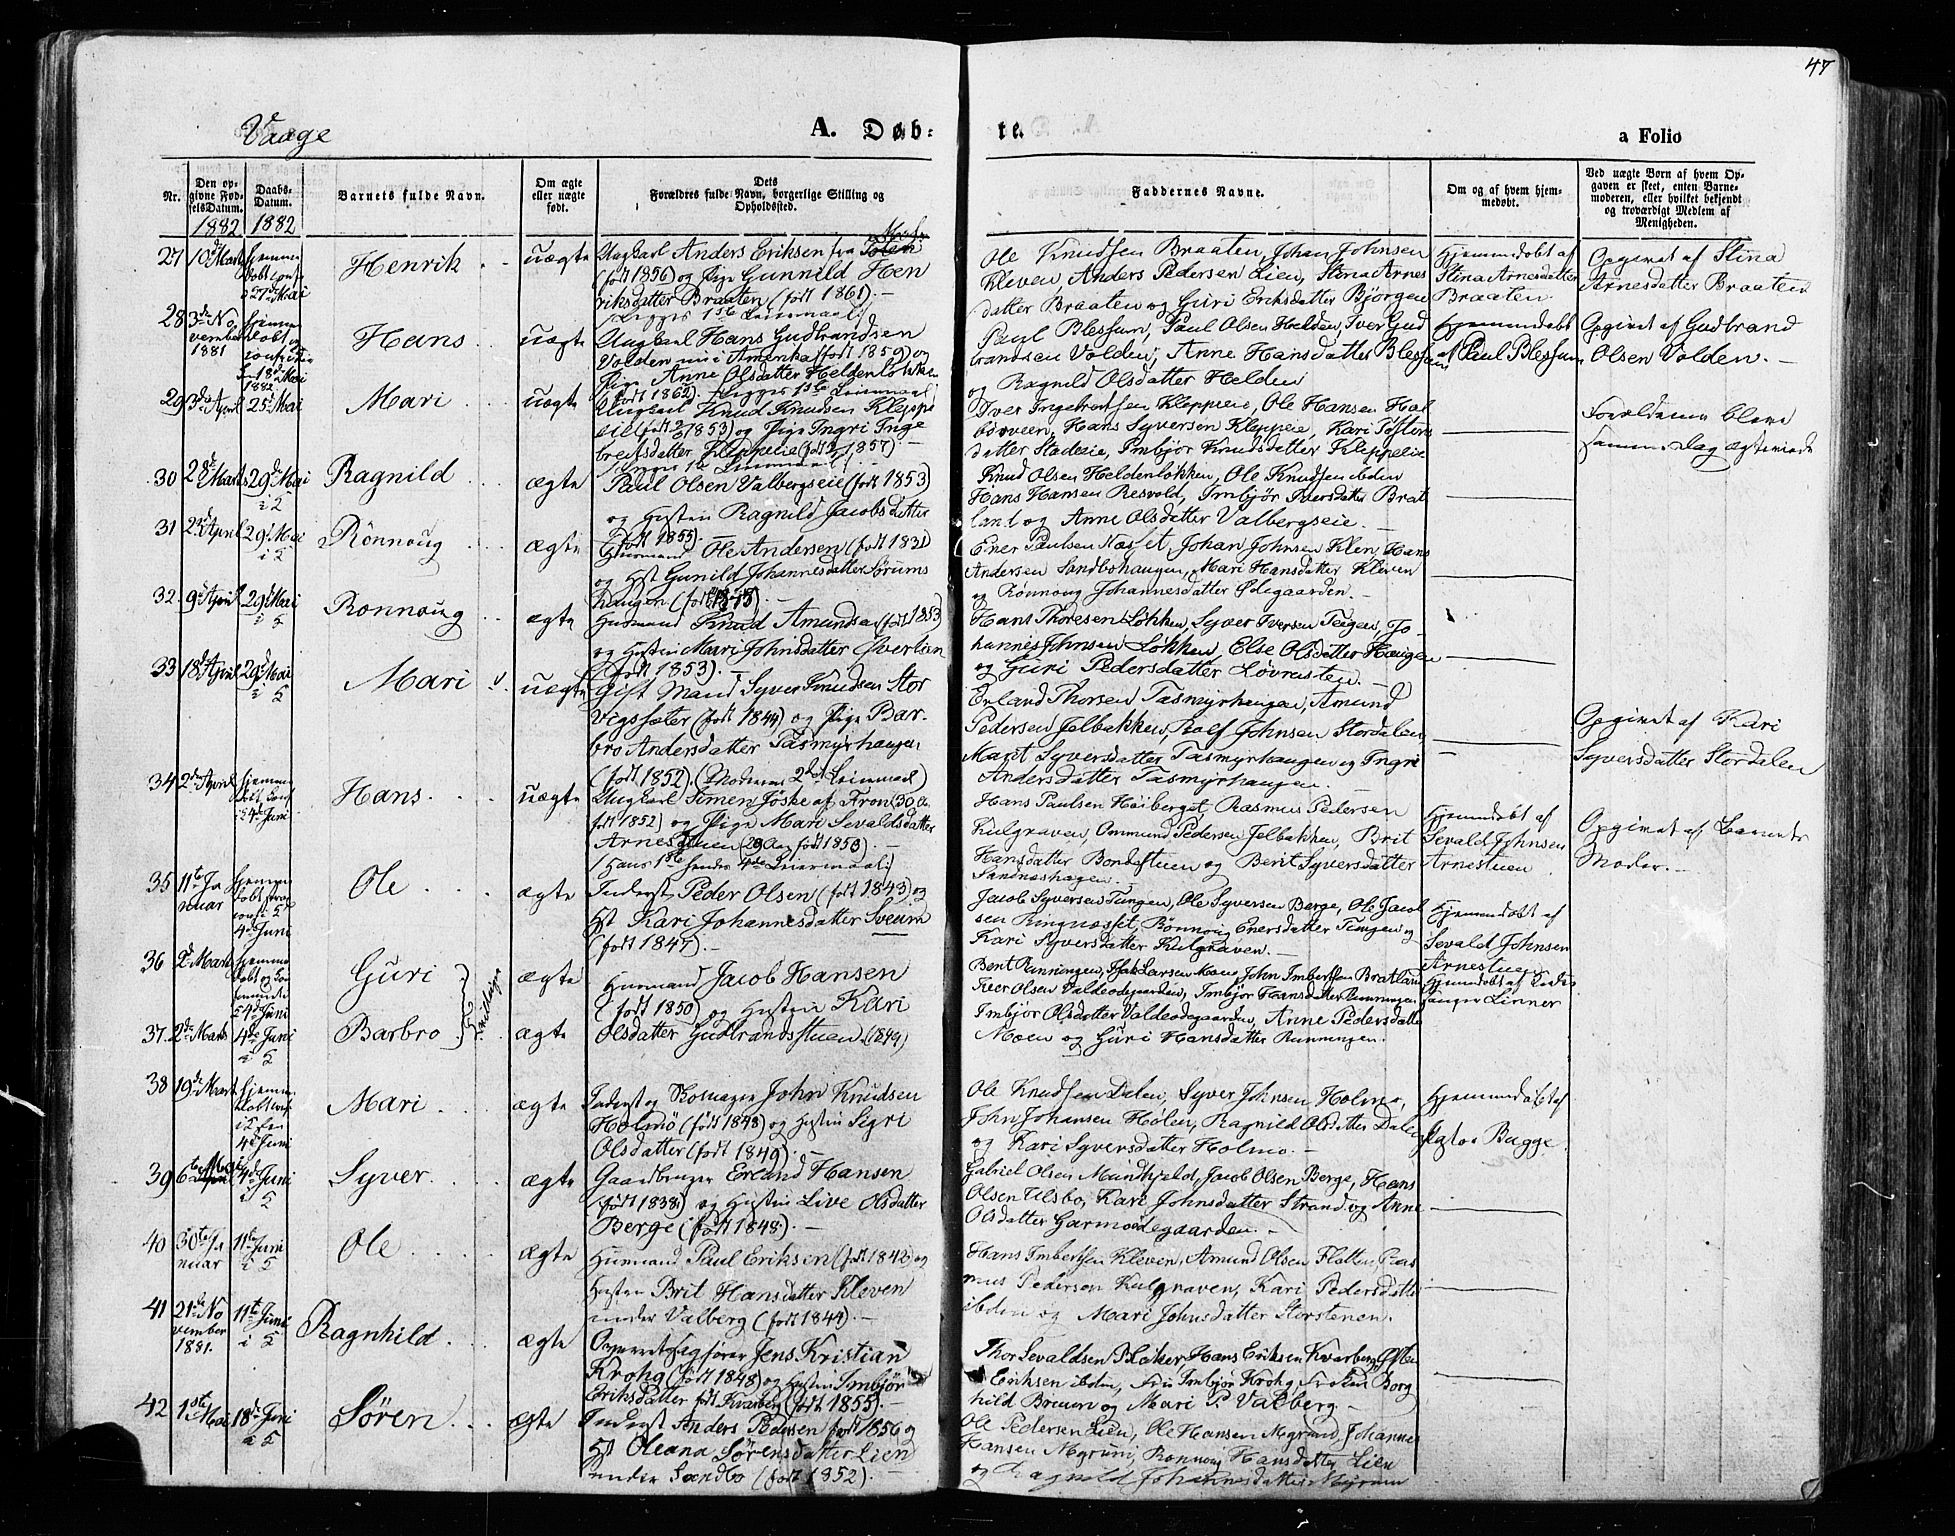 47
Vaage
A. Døb-
te.
a Folio
Nr.
Den opgivne FødselsDatum.
1882
Daabs-Datum.
1882
Barnets fulde Navn.
Om ægte eller uægte født.
Dets Forældres fulde Navn, borgerlige Stilling og Opholdssted.
Faddernes Navne.
Om og af hvem hjemmedøbt.
Ved uægte Børn af hvem Opgaven er skeet, enten Barnemoderen, eller hvilket bekjendt og troværdigt Medlem af Menigheden.
27 10de Marts
27de Mai
Henrik
uægte
Ungkarl Anders Eriksen fra
(født 1856) og Pige Gunnild Hen
riksdatter Braaten (født 1861). —
Ole Knudsen Braaten, Johan Johnsen
Kleven, Anders Pedersen Lien, Stina Arnes
datter Braaten og Guri Eriksdatter Bjørgen
Hjemmedøbt af
Stina Arnesdatter
Braaten.
Opgivet af Stina
Arnesdatter Braaten
28 3de November 1881
18de Mai 1882
Hans
uægte
Ungkarl Hans Gudbrandsen
Volden nu i Amerika (født 1859) og
Pige Anne Olsdatter Heldenløkken
(født 1862).
Paul Blessum, Paul Olsen Helden, Iver Gud
brandsen Volden, Anne Hansdatter Blessum
og Ragnild Olsdatter Helden
Hjemmedøbt
af Paul Blessum
Opgivet af Gudbrand
Olsen Volden. —
29 3de April
25de Mai
Mari
uægte
Ungkarl Knud Knudsen Kleppe
eie (født 1853) og Pige Ingri Inge
bretsdatter Kleppeeie (født 1857) —
Iver Ingebretsen Kleppeie, Ole Hansen Hol
Hans Syversen Kleppeie, Kari
datter Stadeie, Imbjør Knudsdatter Kleppeie
Forældrene bleve
samme Dag ægteviede
30 28de Marts
29de Mai
Ragnild
ægte
Paul Olsen Valbergseie (født 1853)
og Hustru Ragnild Jacobsdatter
(født 1855).
Knud Olsen Heldenløkken, Ole Knudsen ibden
Hans Hansen Resvold, Imbjør Iversdatter Brat
land og Anne Olsdatter Valbergseie. —
31 22de April
29de Mai
Rønnoug
ægte
Huusmand Ole Andersen (født 1831)
og Hst Gunild Johannesdatter Sørums
haugen
Ener Paulsen Næsset, Johan Johnsen Klev, Hans
Andersen Sandbohaugen, Mari Hansdatter Kleven
og Rønnoug Johannesdatter Ødegaarden. —
32. 9de April
29de Mai
Rønnoug
ægte
Husmand Knud Amundsen (født 1853)
og Hustru Mari Johnsdatter Øverlien
(født 1853).
Hans Thoresen Løkken, Syver Iversen Teigen, Jo
hannes Johnsen Løkken, Else Olsdatter Haugen
og Guri Pedersdatter Løvrusten. —
33 18de April
29de Mai
Mari
uægte
Gift Mand Syver Knudsen Stor
vigsæter (født 1849) og Pige Bar-
bro Andersdatter Tasmyrhaugen
(født 1852). (Moderens 2det Leiermaal)
Erland Thorsen Tasmyrhaugen, Amund
Pedersen Jelbakken, Rolf Johnsen Stordalen
Marit Syversdatter Tasmyrhaugen og Ingri
Andersdatter Tasmyrhaugen.
Opgivet af Kari
Syversdatter Stordalen
34 2den April
4de Juni
Hans
uægte
Ungkarl Simen Jøske af Fron (30 Aar
født 1852) og Pige Mari Sevaldsdatter
Arnestuen (29 Aar født 1853). —
Hans Paulsen Høiberget, Rasmus Pedersen
Kulgraven, Ommund Pedersen Jelbakken, Brit
Hansdatter Bondestuen og Berit Syversdatter
Sandneshagen. —
Hjemmedøbt af
Sevald Johnsen
Arnestuen
Opgivet af Barnets
Moder. —
35 11te Januar
4de Juni
Ole
ægte
Inderst Peder Olsen (født 1843) og
Hst Kari Johannesdatter Sveum
(født 1847). —
Jacob Syversen Tungen, Ole Syversen Berge, Ole Jacob
sen Ringnæsset, Rønnoug Enersdatter Tungen og
Kari Syversdatter Kulgraven. —
Hjemmedøbt af
Sevald Johnsen
Arnestuen
36 2de Marts
4de Juni
Guri
ægte
Husmand Jacob Hansen
(født 1850) og Hustru Kari
Bent Runningen, Isak Larsen Moen, John Imbertsen Bratland
Iver Olsen Valdeødegaarden, Imbjør Hansdatter Runningen
Hjemmedøbt af Kirke
sanger Linner
Tvillinger
37. 2de Marts
4de Juni
Barbro
ægte
Olsdatter Gudbrandsstuen. (1849)
Imbjør Olsdatter Valdeødegaarden, Anne Pedersdatter
Moen og Guri Hansdatter Runningen.
38 19de Marts
4de Juni
Mari
ægte
Inderst og Skomager John Knudsen
Holmø (født 1848) og Hustru Sigri
Olsdatter (født 1849). —
Ole Knudsen Dalen, Syver Johnsen Holmø,
John Johansen Holen, Ragnild Olsdatter Dalen
og Kari Syversdatter Holmø. —
Hjemmedøbt af
Bagge
39 6te
4de Juni
Syver
ægte
Gaardbruger Erland Hansen
(født 1838) og Hustru Live Olsdatter
Berge (født 1848). —
Gabriel Olsen Mundhjeld, Jacob Olsen Berge, Hans
Olsen Ulsbo, Kari Johnsdatter Strand og Anne
Olsdatter Garmoødegaarden. —
40 30te Januar
11te Juni
Ole
ægte
Husmand Paul Eriksen (født 1842) og
Hustru Brit Hansdatter Kleven
under Valberg (født 1849). —
Hans Imbertsen Kleven, Amund Olsen Flatten, Ras
mus Pedersen Kulgraven, Kari Pedersdatter
ibden og Mari Johnsdatter Storstenen.
41 21de November 1881.
11te Juni
Ragnhild
ægte
Jens Kristian
Krohg (født 1848) og Hustru Imbjør
Eriksdatter født Kvarberg (født 1855). —
Thor Sevaldsen Blaker, Hans Eriksen Kvarberg, Østen
Eriksen ibden, Fru Imbjør Krohg, Frøken Borg
hild Bruun og Mari P. Valberg. —
42 1ste Mai
18de Juni
Søren
ægte
Inderst Anders Pedersen født 1856 og
Hst Oleana Sørensdatter Lien
under Sandbo (født 1852). —
Ole Pedersen Lien, Ole Hansen Myrum, Johannes
Hansen Myrum, Rønnoug Hansdatter Lien
og Ragnild Johannesdatter Myrum